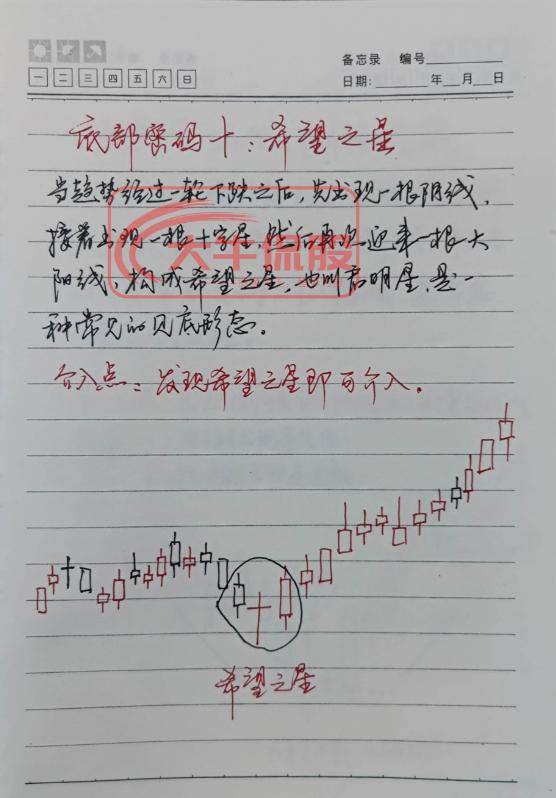 备忘录 编号
一 二 三 四 五 六 日
日期: 年 月 日
底部密码十：希望之星
当趋势经过一轮下跌之后，先出现一根阴线，
接着出现一根十字星，然后再次迎来一根大
阳线，构成希望之星，也叫启明星，是一
种常见的见底形态。
介入点：发现希望之星即可介入。
希望之星